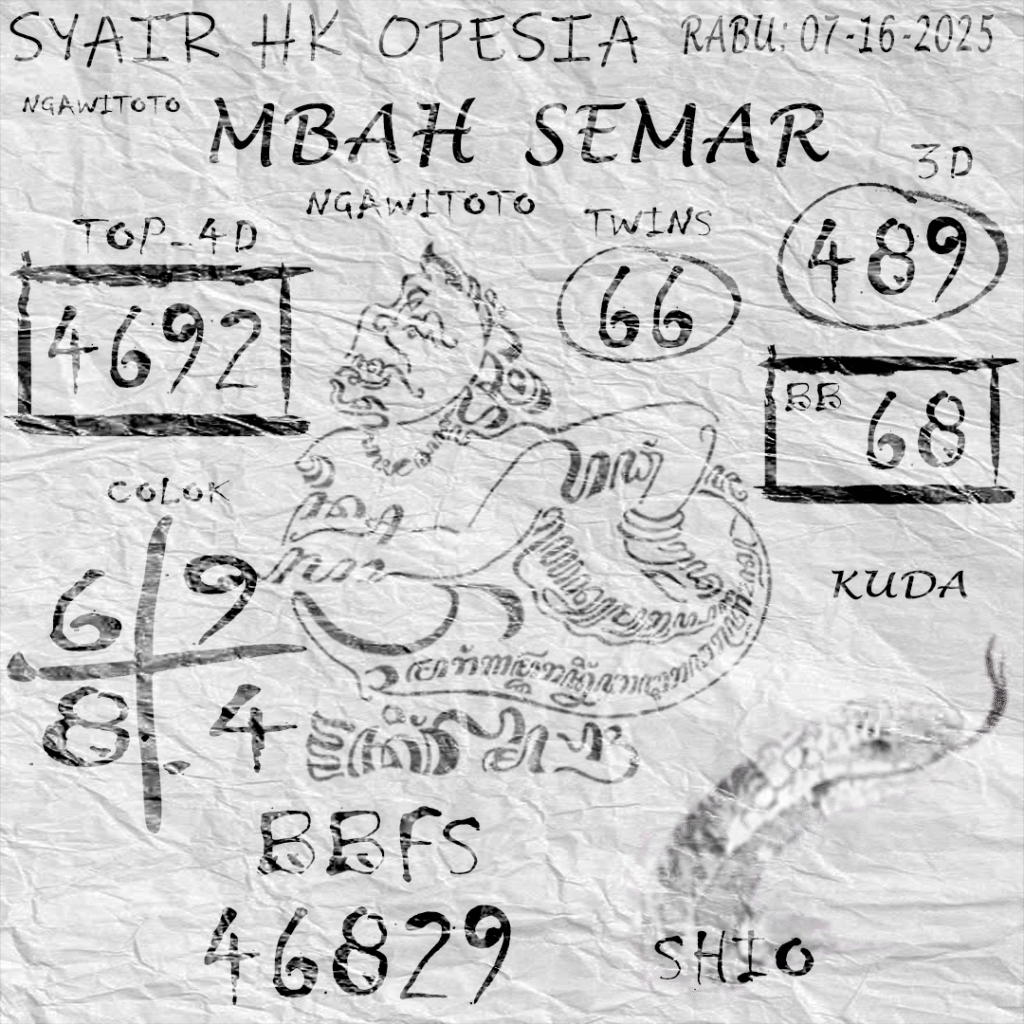 SYAIR HK OPESIA
RABU: 07-16-2025
NGAWITOTO
MBAH SEMAR
3D
NGAWITOTO
TWINS
489
TOP_4D
66
4692
BB 68
COLOK
6 9
8 4
KUDA
BBFS
46829
SHIO